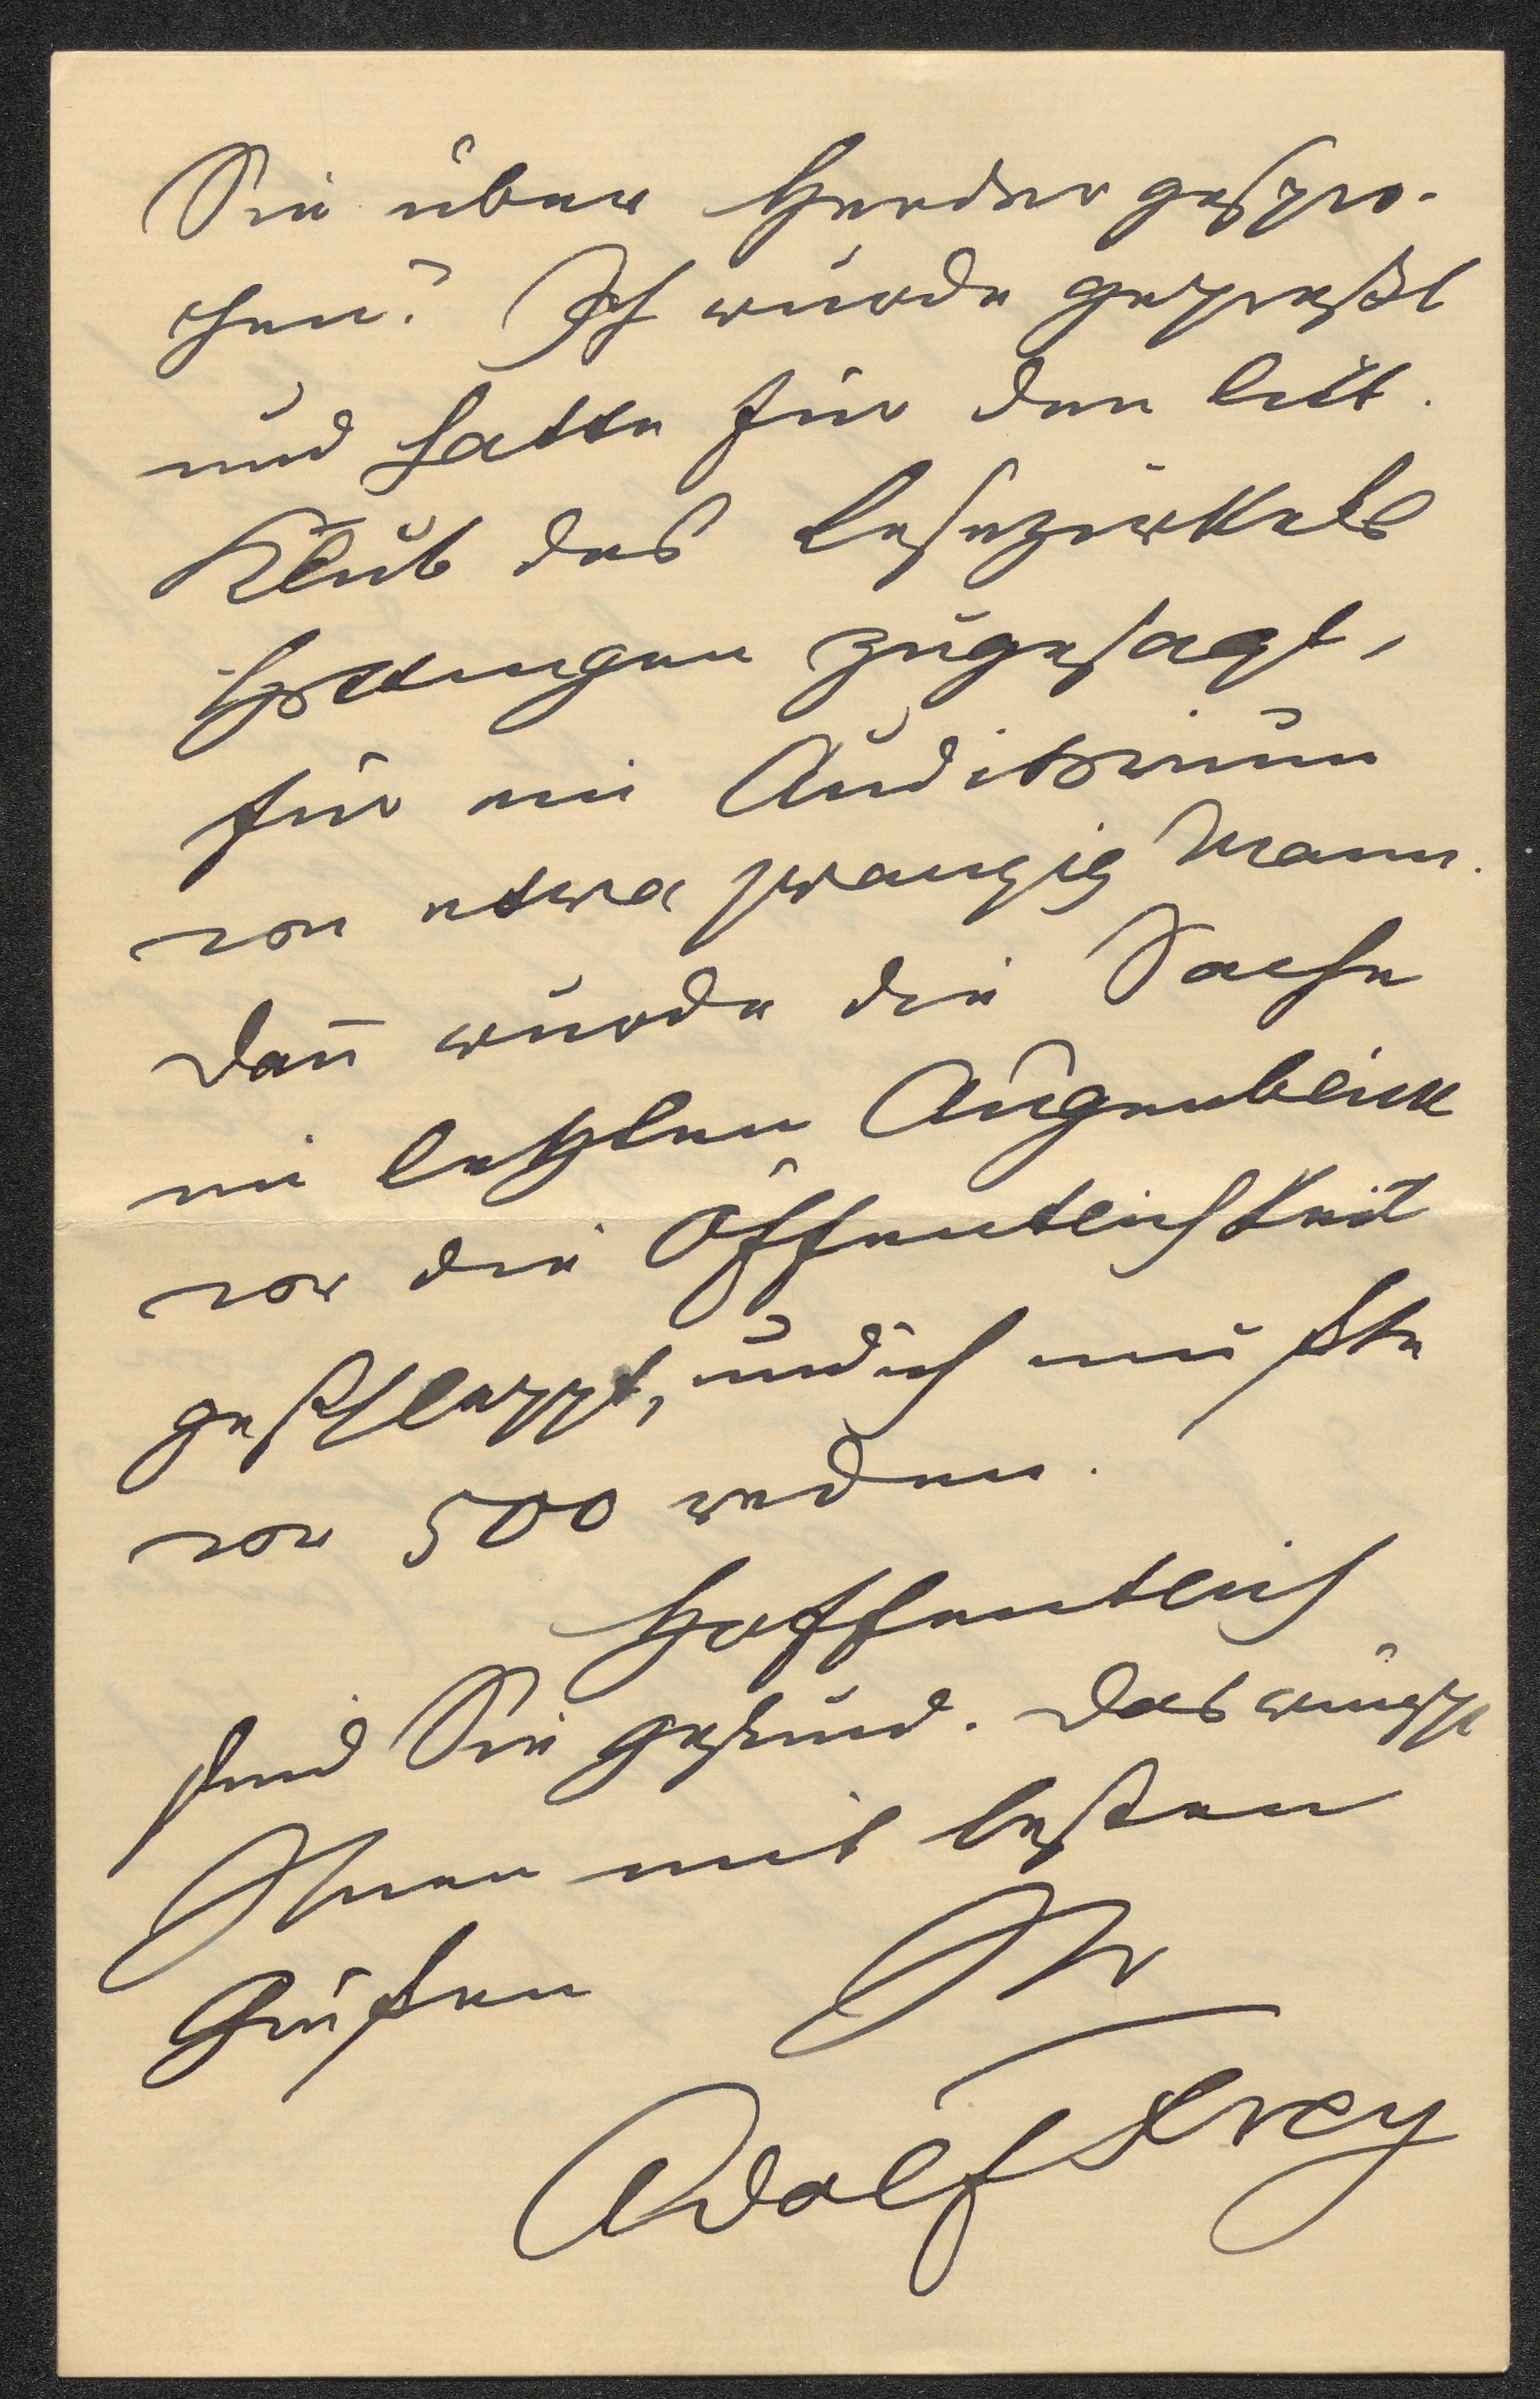 Sie über Herder gespro-
chen? Ich wurde gepreßt
und hatte für den litt.
Klub des Lesezirkels
Hottingen zugesagt,
für ein Auditorium
von etwa zwanzig Mann.
Dañ wurde die Sache
im letzten Augenblick
vor die Öffentlichkeit
geschleppt, und ich mußte
vor 500 reden.
Hoffentlich
sind Sie gesund. Das wünscht
Ihnen mit besten
Grüßen Ihr
Adolf Frey